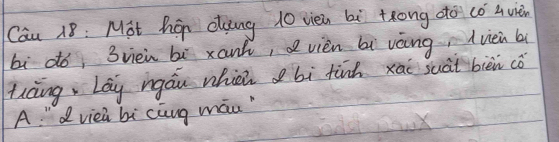 Câu 18: Một hộp đựng 10 viên bi trong đó có 4 viên
bi đỏ, 3 viên bi xanh, 2 viên bi vàng, 1 viên bi
trắng. Lấy ngẫu nhiên 2 bi tính xác suất biến cố
A: "2 viên bi cùng màu"